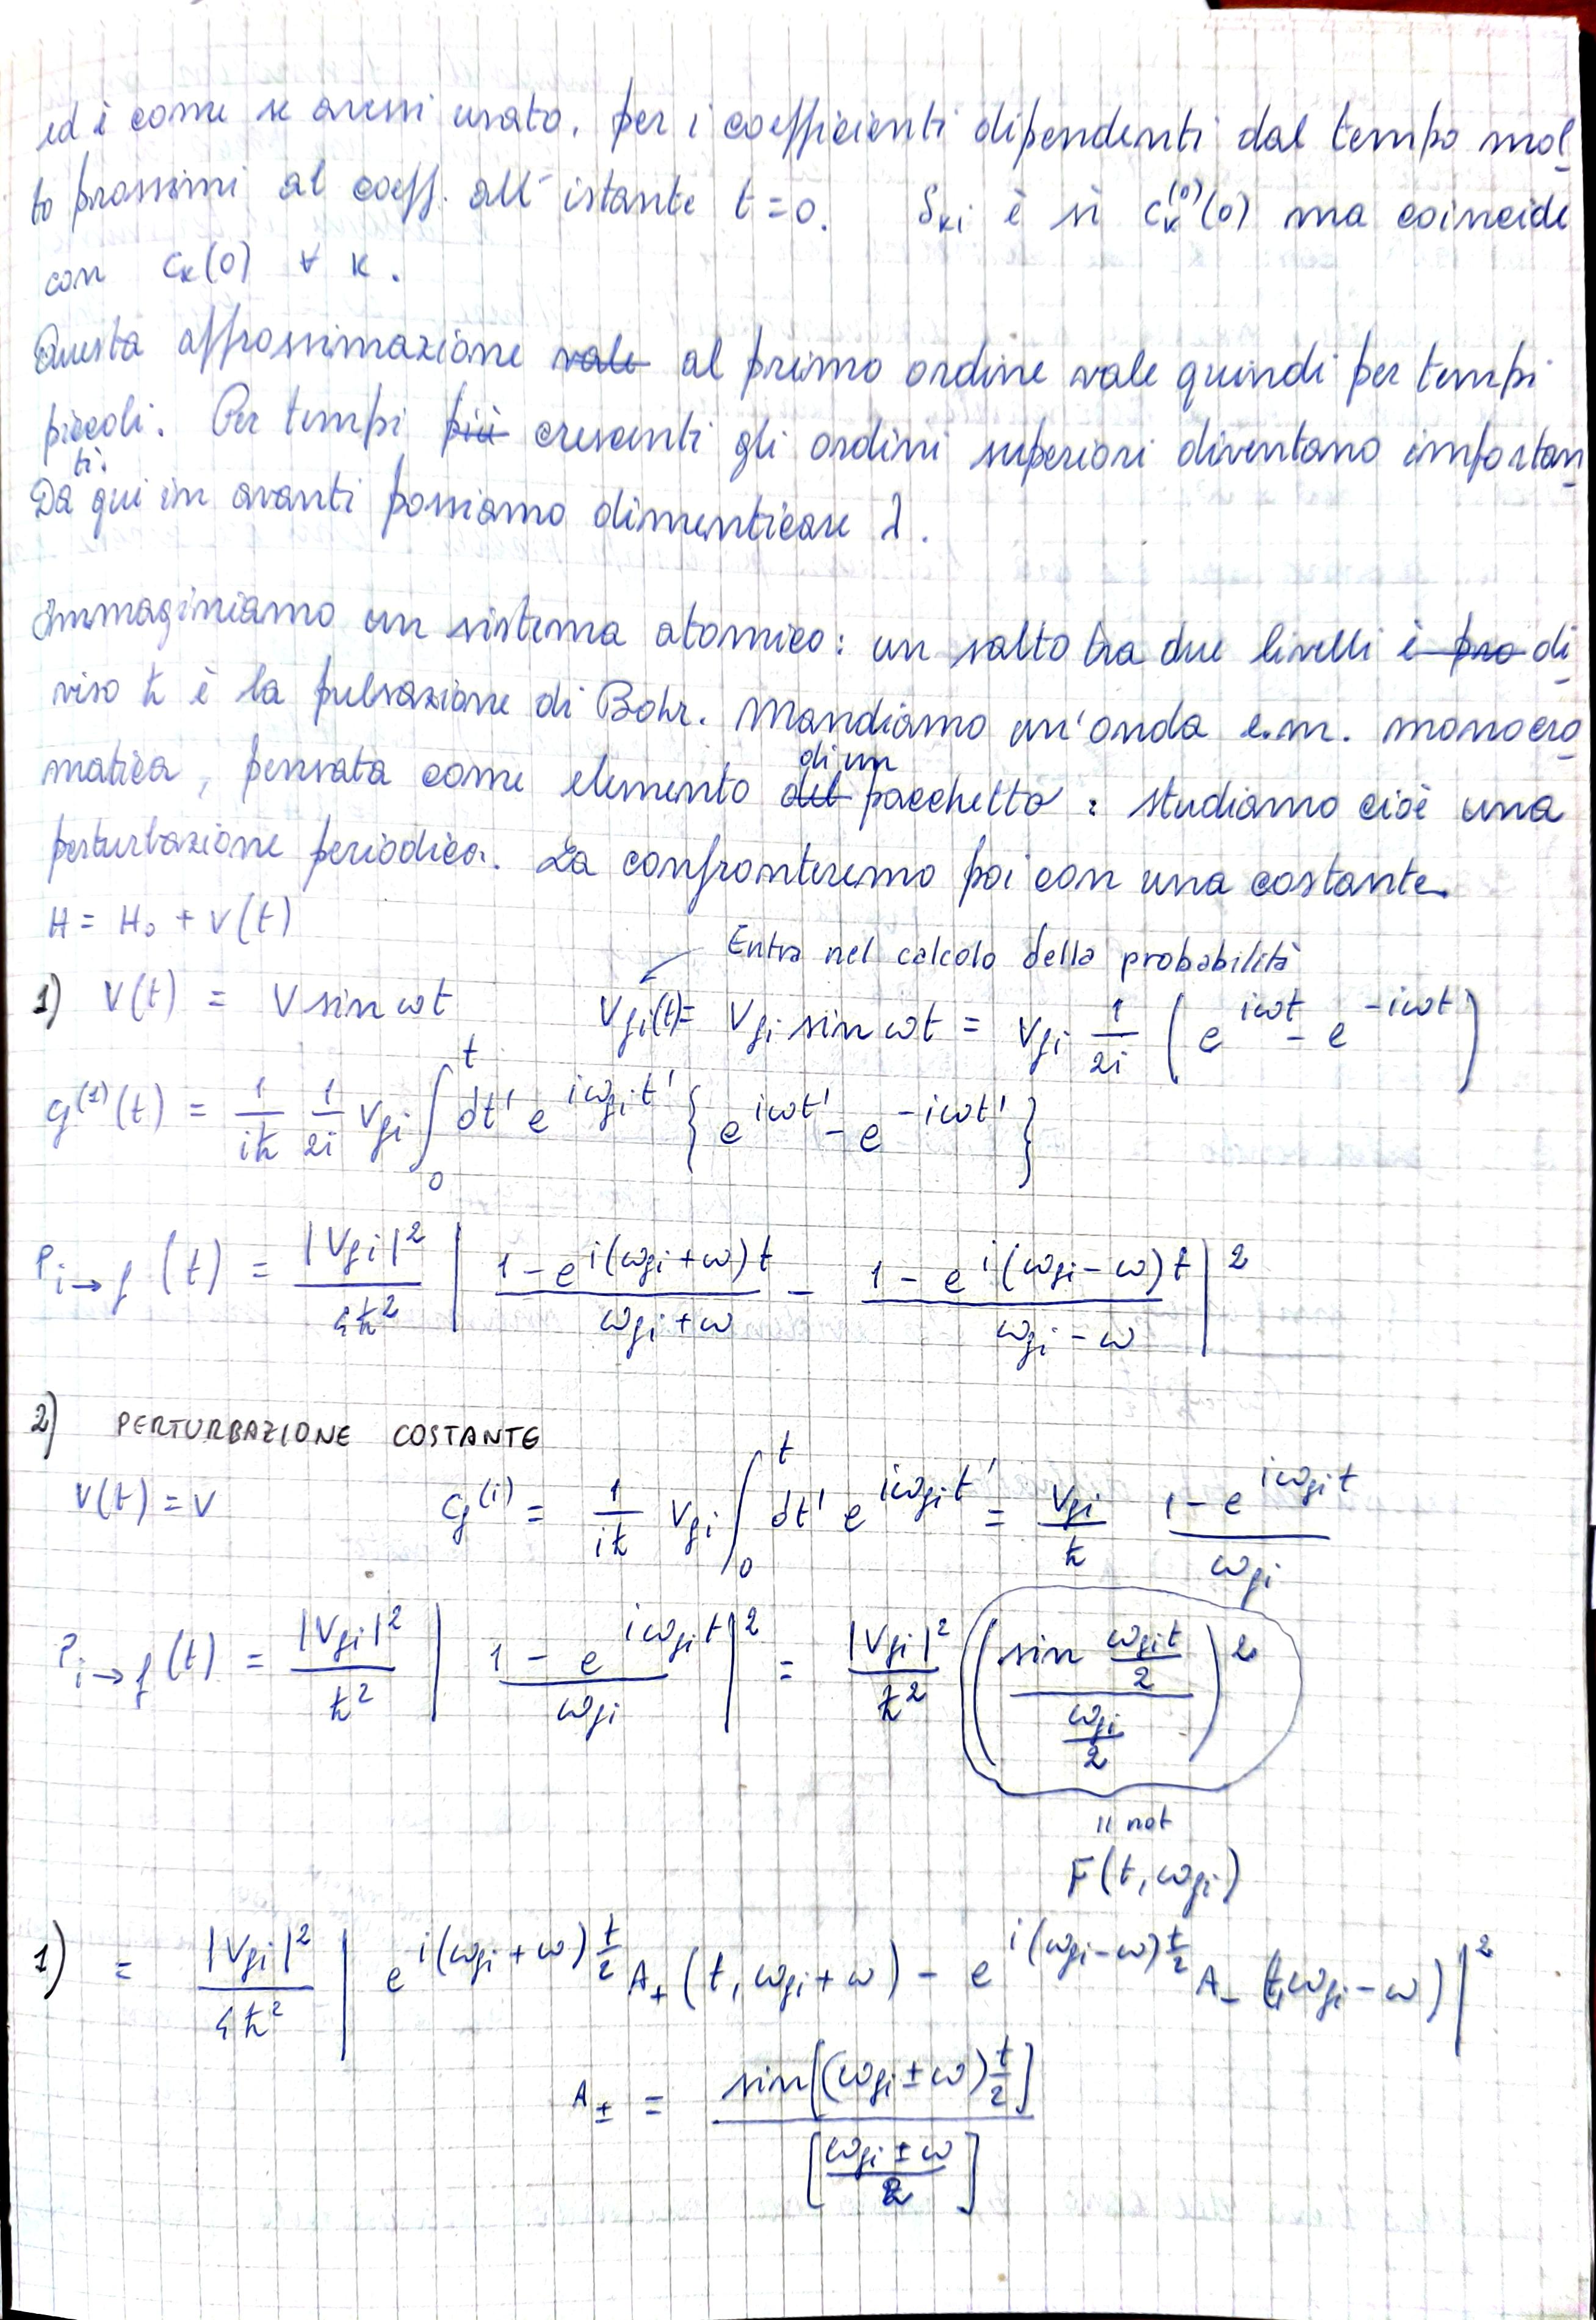 ed è come se avessi usato, per i coefficienti dipendenti dal tempo mol-
to prossimi al coeff. all'istante t=0. δ_{ki} è sì c_k^{(0)}(0) ma coincide
con c_k(0) ∀ k.
Questa approssimazione ~~vale~~ al primo ordine vale quindi per tempi
piccoli. Per tempi ~~più~~ crescenti gli ordini superiori diventano importan-
ti.
Da qui in avanti possiamo dimenticare λ.
Immaginiamo un sistema atomico: un salto tra due livelli ~~è pro~~ di-
viso ħ è la pulsazione di Bohr. Mandiamo un'onda e.m. monocro-
matica, pensata come elemento ~~del~~ di un pacchetto: studiamo cioè una
perturbazione periodica. La confronteremo poi con una costante.
H = H_0 + V(t)
Entra nel calcolo della probabilità
1) V(t) = V sin ωt    V_{fi}(t) = V_{fi} sin ωt = V_{fi} \frac{1}{2i} (e^{iωt} - e^{-iωt})
c_f^{(1)}(t) = \frac{1}{iħ} \frac{1}{2i} V_{fi} ∫_0^t dt' e^{iω_{fi}t'} {e^{iωt'} - e^{-iωt'}}
P_{i→f}(t) = \frac{|V_{fi}|^2}{4ħ^2} | \frac{1-e^{i(ω_{fi}+ω)t}}{ω_{fi}+ω} - \frac{1-e^{i(ω_{fi}-ω)t}}{ω_{fi}-ω} |^2
2) PERTURBAZIONE COSTANTE
V(t) = V    c_f^{(i)} = \frac{1}{iħ} V_{fi} ∫_0^t dt' e^{iω_{fi}t'} = \frac{V_{fi}}{ħ} \frac{1-e^{iω_{fi}t}}{ω_{fi}}
P_{i→f}(t) = \frac{|V_{fi}|^2}{ħ^2} | \frac{1-e^{iω_{fi}t}}{ω_{fi}} |^2 = \frac{|V_{fi}|^2}{ħ^2} ( \frac{sin \frac{ω_{fi}t}{2}}{\frac{ω_{fi}}{2}} )^2
|| not
F(t, ω_{fi})
1) = \frac{|V_{fi}|^2}{4ħ^2} | e^{i(ω_{fi}+ω)\frac{t}{2}} A_+(t, ω_{fi}+ω) - e^{i(ω_{fi}-ω)\frac{t}{2}} A_-(t, ω_{fi}-ω) |^2
A_± = \frac{sin[(ω_{fi}±ω)\frac{t}{2}]}{[\frac{ω_{fi}±ω}{2}]}